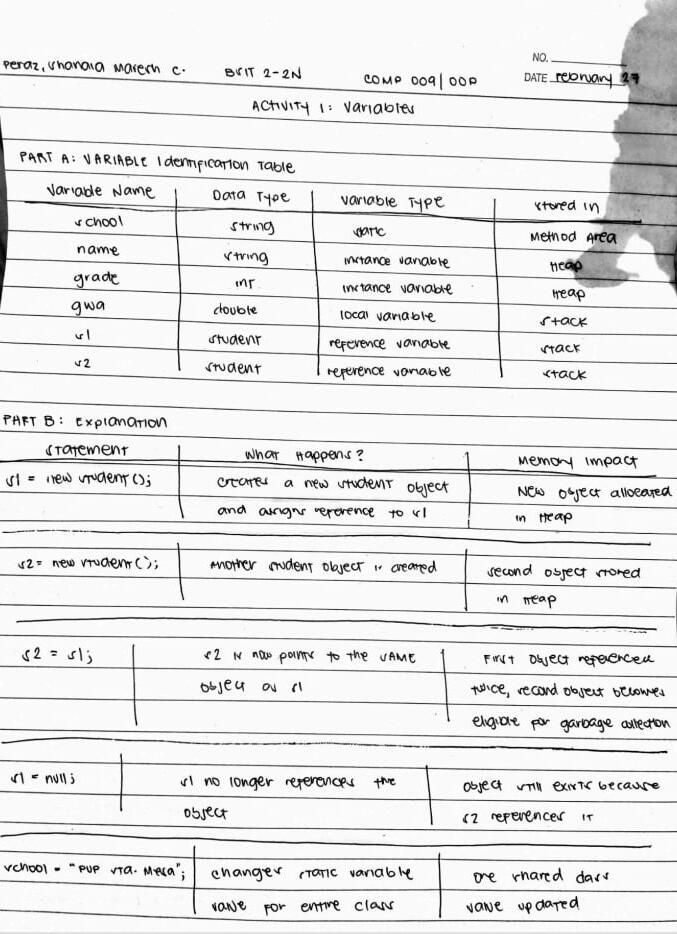 NO.
Peraz, Shanaia Maresh C. BSIT 2-2N COMP 009/OOP DATE February 27
ACTIVITY 1: Variables
PART A: VARIABLE Identification Table
Variable Name Data Type Variable Type Stored in
school string static Method Area
name string instance variable Heap
grade int instance variable Heap
gwa double local variable Stack
s1 student reference variable stack
s2 student reference variable stack
PART B: Explanation
Statement What Happens? Memory Impact
s1 = new student(); creates a new student object New object allocated
and assigns reference to s1 in Heap
s2 = new student(); Another student object is created second object stored
in Heap
s2 = s1; s2 is now points to the SAME First object referenced
object as s1 twice, second object becomes
eligible for garbage collection
s1 = null; s1 no longer references the object still exists because
object s2 references it
school = "PUP Sta. Mesa"; changes static variable one shared class
value for entire class value updated